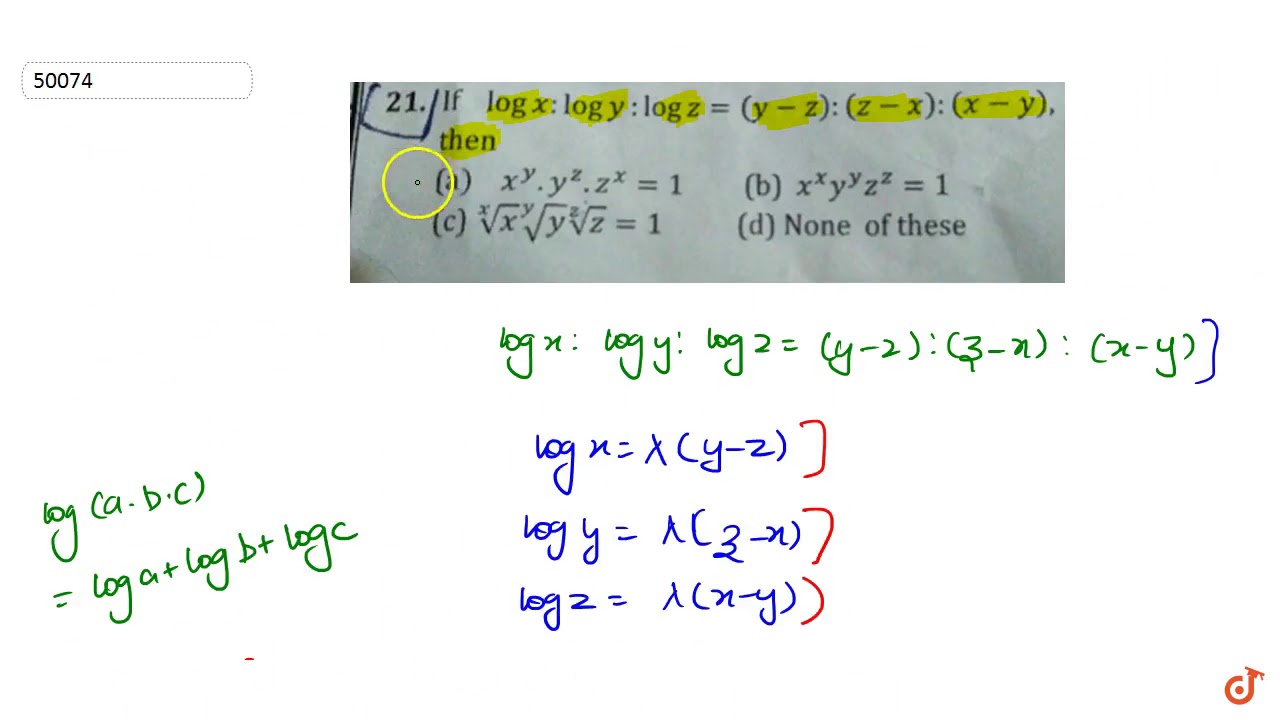 50074
21. If log x : log y : log z = (y − z) : (z − x) : (x − y),
then
(a) x^y . y^z . z^x = 1 (b) x^x y^y z^z = 1
(c) ˣ√x ʸ√y ᶻ√z = 1 (d) None of these
log x : log y : log z = (y-z) : (z-x) : (x-y)]
log x = λ(y-z)]
log(a.b.c)
log y = λ(z-x)]
= log a + log b + log c
log z = λ(x-y))